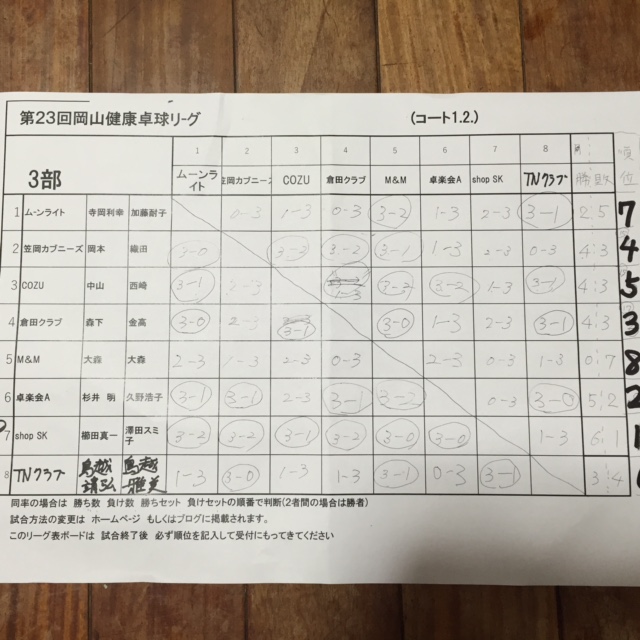 第23回岡山健康卓球リーグ (コート1.2.)
1 2 3 4 5 6 7 8
3部 ムーンライト 笠岡カブニーズ COZU 倉田クラブ M&M 卓楽会A shop SK TNクラブ 勝敗 順位
1 ムーンライト 寺岡利幸 加藤耐子 0-3 1-3 0-3 3-2 1-3 2-3 3-1 2:5 7
2 笠岡カブニーズ 岡本 織田 3-0 3-2 3-1 1-3 2-3 0-3 4:3 4
3 COZU 中山 西崎 3-1 1-3 3-2 3-2 1-3 3-1 4:3 5
4 倉田クラブ 森下 金高 3-0 2-3 3-1 3-0 1-3 2-3 3-1 4:3 3
5 M&M 大森 大森 2-3 1-3 2-3 0-3 2-3 0-3 1-3 0:7 8
6 卓楽会A 杉井 明 久野浩子 3-1 3-1 2-3 3-1 3-2 0-3 3-0 5:2 2
7 shop SK 櫛田真一 澤田スミ子 3-2 3-2 3-1 3-2 3-0 3-0 1-3 6:1 1
8 TNクラブ 鳥越靖弘 鳥越雅美 1-3 3-0 1-3 1-3 3-1 0-3 3-1 3:4
同率の場合は 勝ち数 負け数 勝ちセット 負けセットの順番で判断(2者間の場合は勝者)
試合方法の変更は ホームページ もしくはブログに掲載されます。
このリーグ表ボードは 試合終了後 必ず順位を記入して受付にもってきてください